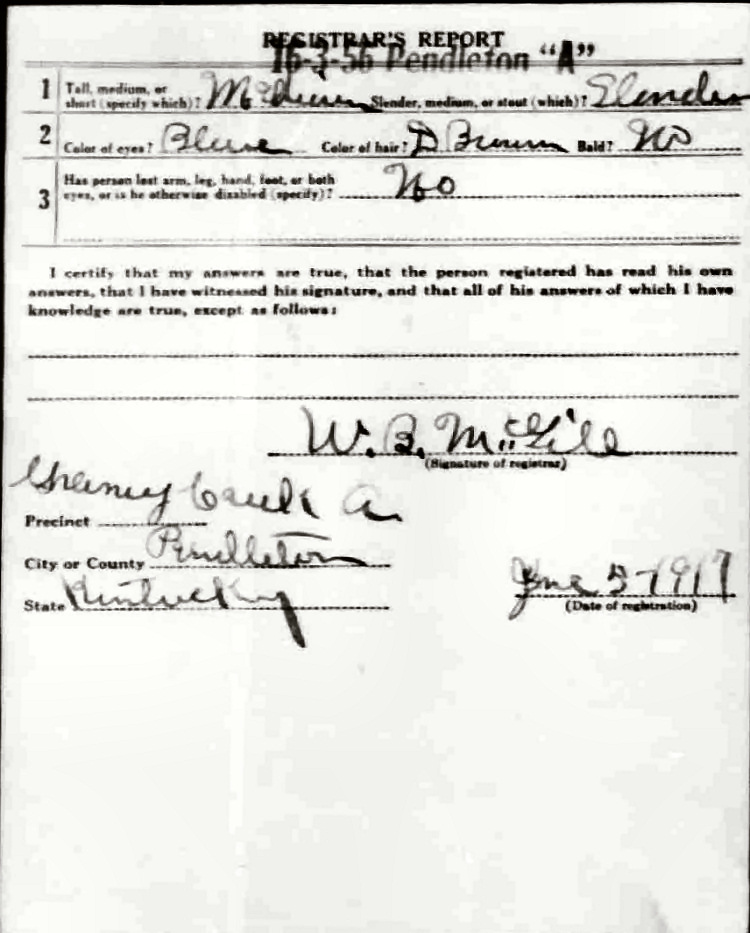 REGISTRAR'S REPORT
16-3-56 Pendleton "A"
1 Tall, medium, or short (specify which)? Medium Slender, medium, or stout (which)? Slender
2 Color of eyes? Blue Color of hair? D Brown Bald? No
3 Has person lost arm, leg, hand, foot, or both
eyes, or is he otherwise disabled (specify)? No
I certify that my answers are true, that the person registered has read his own
answers, that I have witnessed his signature, and that all of his answers of which I have
knowledge are true, except as follows:
W. B. McGill
(Signature of registrar)
Precinct
City or County Pendleton
State Kentucky
June 5-1917
(Date of registration)